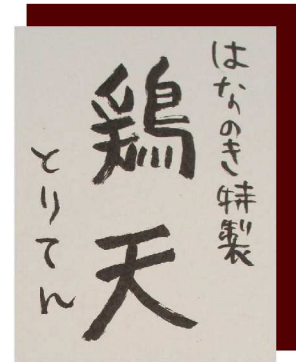 はなのき特製
鶏天
とりてん